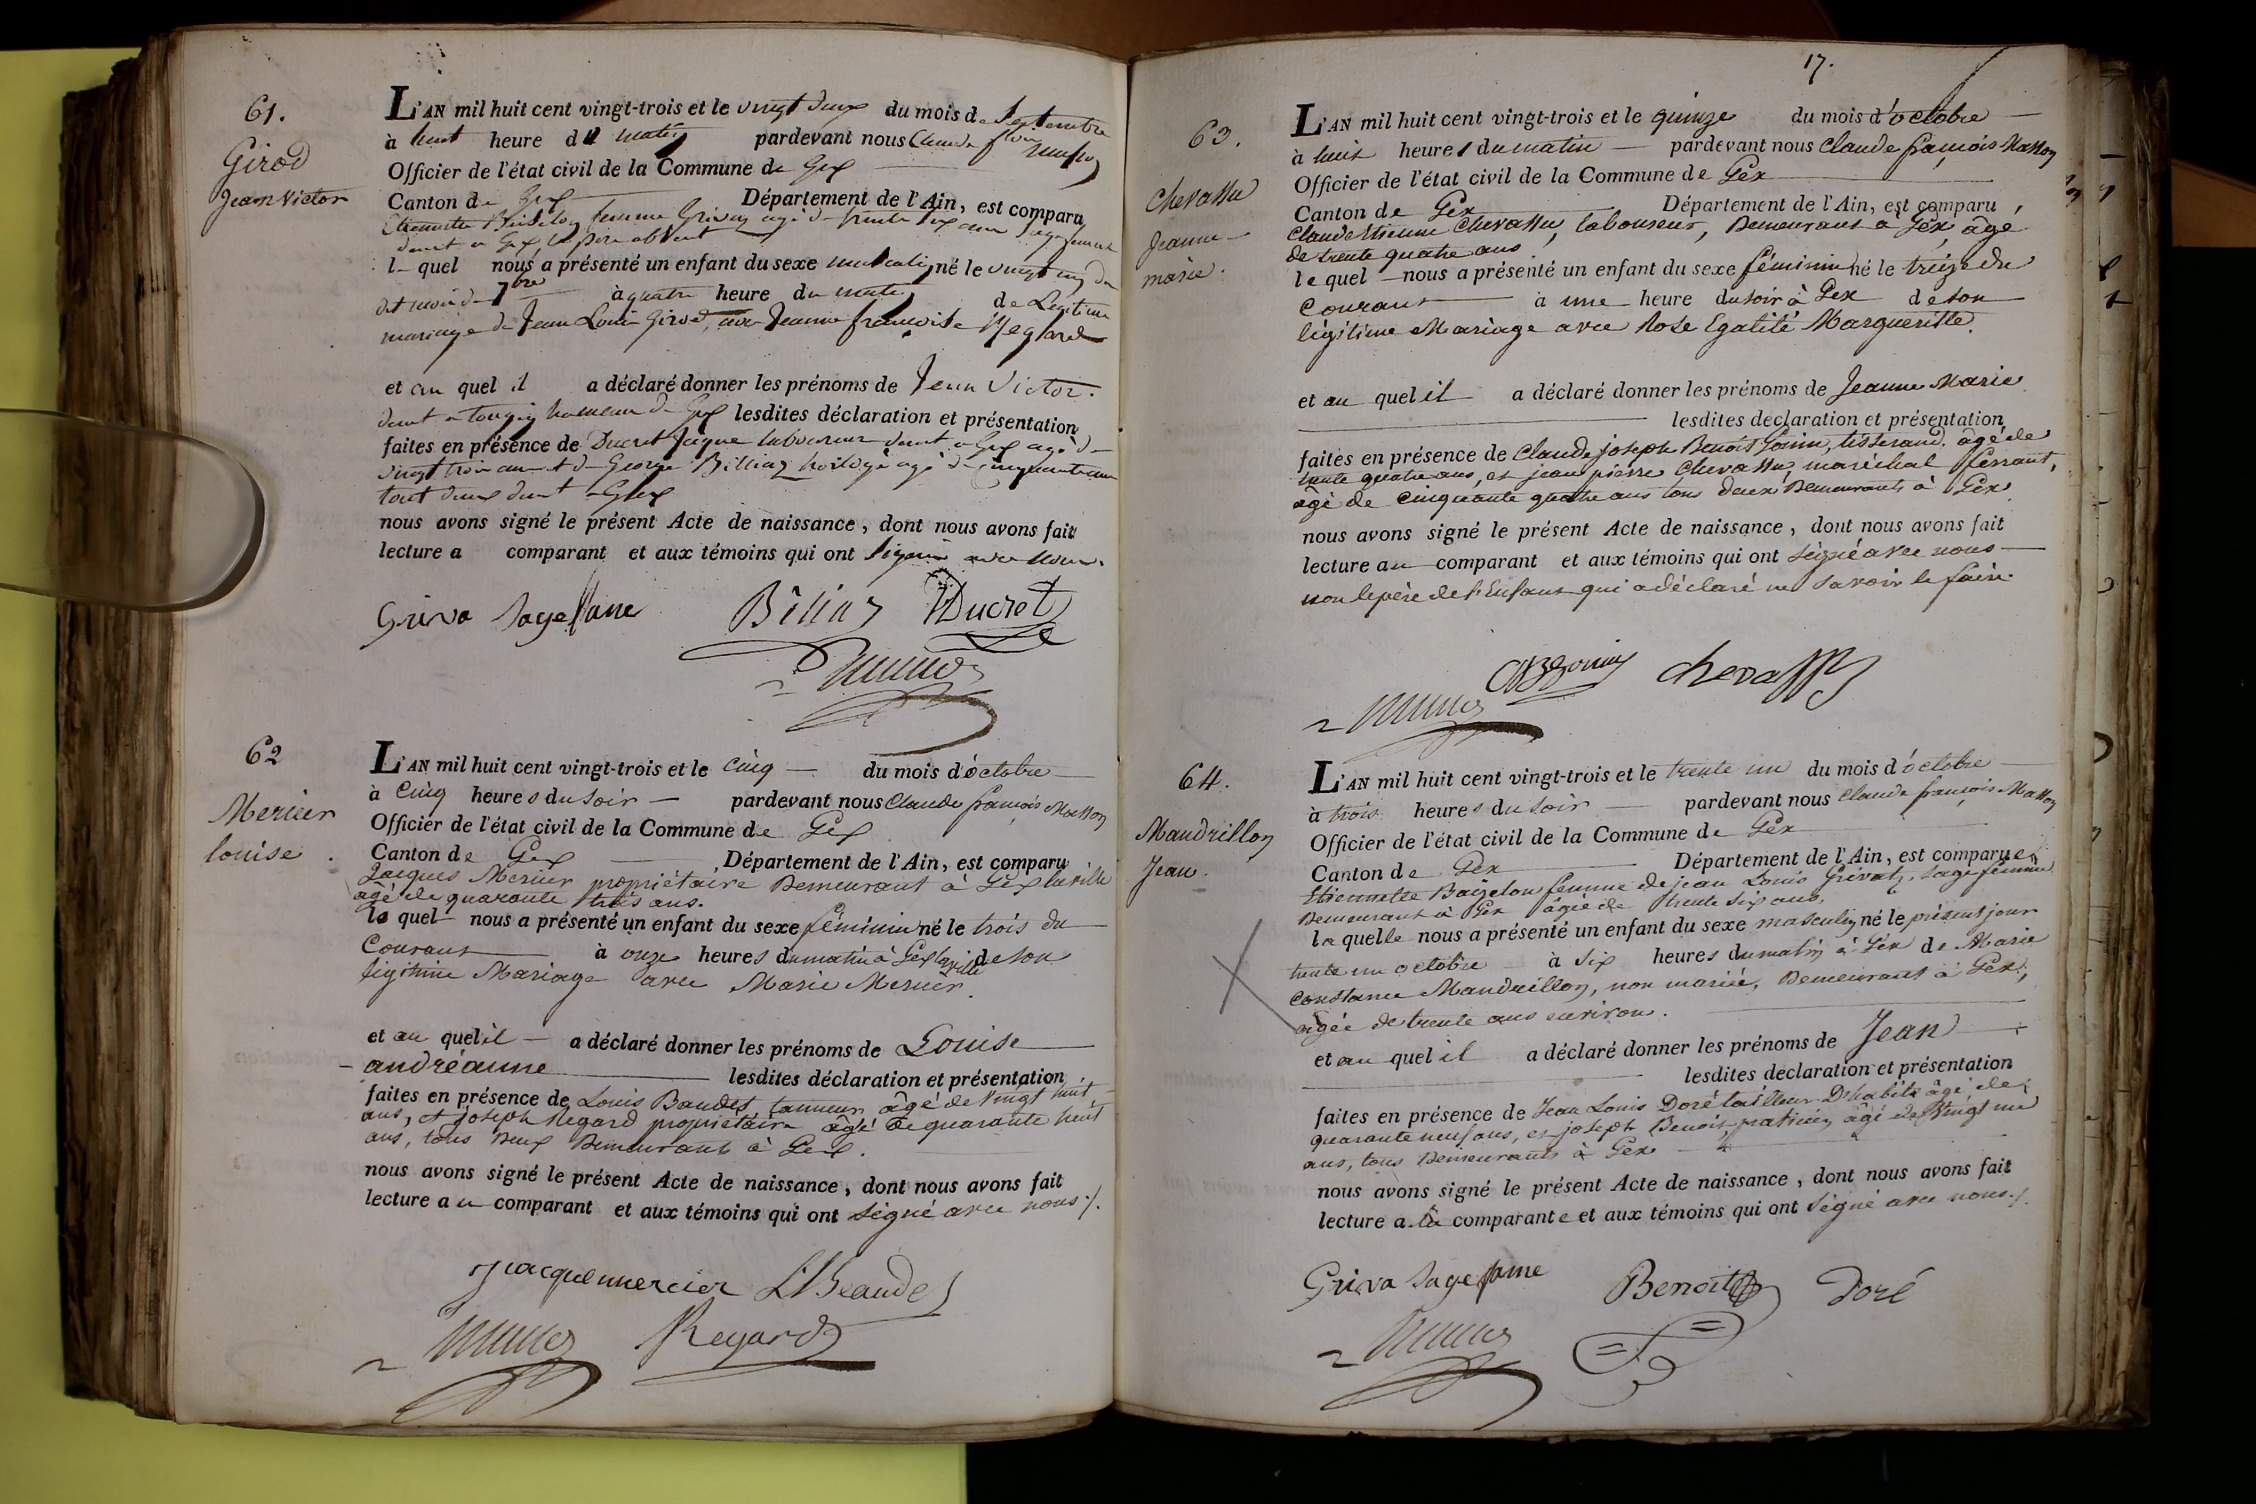 61.
Girod
Jean Victor
L'AN mil huit cent vingt-trois et le vingt deux du mois de Septembre
à huit heure du matin pardevant nous Claude
Officier de l'état civil de la Commune de Gex
Canton de Gex Département de l'Ain, est comparu
femme Grivaz agé de trente six ans sagefemme
demt a Gex le père absent
l- quel nous a présenté un enfant du sexe masculin né le vingt un du
dit mois de 7bre à quatre heure du matin de Légitime
mariage de Jean Louis Girod, avec Jeanne françoise
et au quel il a déclaré donner les prénoms de Jean Victor.
demt a tougin hameau de Gex lesdites déclaration et présentation
faites en présence de Ducret Jaque laboureur demt a Gex agé de
vingt trois ans et de George Billiaz horloger agé de cinquante ans
tout deux demt a Gex
nous avons signé le présent Acte de naissance, dont nous avons fait
lecture a comparant et aux témoins qui ont signé avec nous.
Griva Sagefame Billiaz Ducret
62
Mercier
louise.
L'AN mil huit cent vingt-trois et le cinq du mois d'octobre
à cinq heures du soir pardevant nous Claude françois Masson
Officier de l'état civil de la Commune de Gex
Canton de Gex Département de l'Ain, est comparu
Jacques Mercier propriétaire Demeurant à Gex la ville
âgé de quarante trois ans.
le quel nous a présenté un enfant du sexe féminin né le trois du
Courant à onze heures du matin à Gex la ville de son
légitime Mariage avec Marie Mercier.
et au quel il a déclaré donner les prénoms de Louise
andréanne lesdites déclaration et présentation
faites en présence de Louis Baudet, tanneur âgé de vingt huit
ans, et joseph Regard propriétaire âgé de quarante huit
ans, tous deux Demeurants à Gex.
nous avons signé le présent Acte de naissance, dont nous avons fait
lecture au comparant et aux témoins qui ont signé avec nous ./.
jacque mercier L. Beaudet
Regard
17.
63.
Chevassu
Jeanne
marie.
L'AN mil huit cent vingt-trois et le quinze du mois d'octobre
à huit heures du matin pardevant nous Claude françois Masson
Officier de l'état civil de la Commune de Gex
Canton de Gex Département de l'Ain, est comparu
Claude Etienne Chevassu, laboureur, Demeurant à Gex, âgé
de trente quatre ans
le quel nous a présenté un enfant du sexe féminin né le treize du
Courant à une heure du soir à Gex de son
légitime Mariage avec Rose Egalité Margueritte.
et au quel il a déclaré donner les prénoms de Jeanne Marie
lesdites déclaration et présentation
faites en présence de Claude joseph Benoit Gonin, tisserand, âgé de
trente quatre ans, et jean pierre Chevassu, maréchal ferrant,
âgé de cinquante quatre ans tous deux Demeurants à Gex
nous avons signé le présent Acte de naissance, dont nous avons fait
lecture au comparant et aux témoins qui ont signé avec nous
non le père de l'Enfant qui a déclaré ne savoir le faire.
Gonin chevassu
64.
Mandrillon
Jean.
L'AN mil huit cent vingt-trois et le trente un du mois d'octobre
à trois heures du soir pardevant nous Claude françois Masson
Officier de l'état civil de la Commune de Gex
Canton de Gex Département de l'Ain, est comparue
Etiennette femme de jean Louis Grivatz, Sage femme
Demeurant à Gex âgée de trente six ans,
la quelle nous a présenté un enfant du sexe masculin né le présent jour
trente un octobre à six heures du matin à Gex de Marie
Constance Mandrillon, non mariée, Demeurant à Gex,
agée de trente ans environ.
et au quel il a déclaré donner les prénoms de Jean
lesdites déclaration et présentation
faites en présence de Jean Louis Doré tailleur D'habits âgé de
quarante neuf ans, et joseph Benoit, praticien âgé de Vingt un
ans, tous Demeurants à Gex
nous avons signé le présent Acte de naissance, dont nous avons fait
lecture a la comparante et aux témoins qui ont signé avec nous ./.
Griva Sagefame Benoit Doré